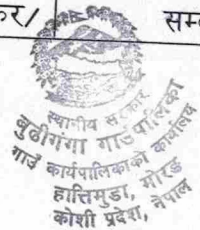 कर/
सम्
स्थानीय सरकार
बुढीगंगा गाउँपालिका
गाउँ कार्यपालिकाको कार्यालय
हात्तिमुडा, मोरङ
कोशी प्रदेश, नेपाल